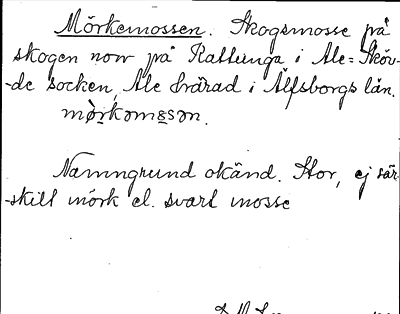 Mörkemossen. Skogsmosse på
skogen norr på Rattunga i Ale=Sköv-
-de socken, Ale härad i Älfsborgs län.
mörkəmɵsən.
Namngrund okänd. Stor, ej sär-
-skilt mörk el. svart mosse